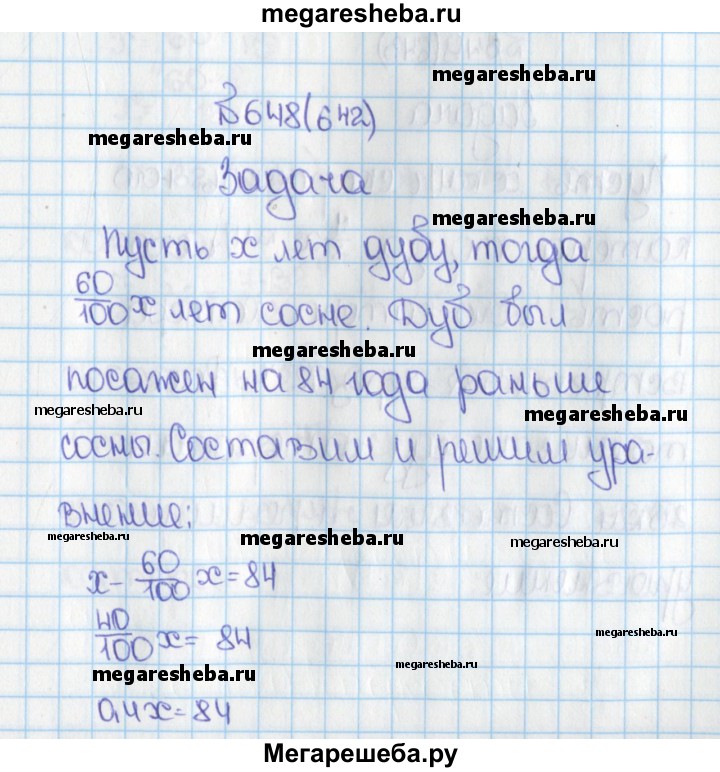 megaresheba.ru
megaresheba.ru
№648(642)
megaresheba.ru
Задача
megaresheba.ru
Пусть x лет дубу, тогда
60/100 x лет сосне. Дуб был
megaresheba.ru
посажен на 84 года раньше
megaresheba.ru
megaresheba.ru
сосны. Составим и решим ура-
внение:
megaresheba.ru
megaresheba.ru
megaresheba.ru
x - 60/100 x = 84
40/100 x = 84
megaresheba.ru
megaresheba.ru
megaresheba.ru
0,4x = 84
Мегарешеба.ру